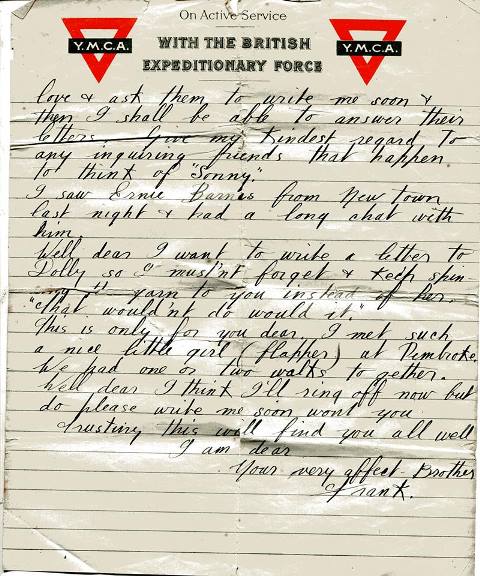 On Active Service
Y.M.C.A.
WITH THE BRITISH
EXPEDITIONARY FORCE
Y.M.C.A.
love & ask them to write me soon &
then I shall be able to answer their
letters. Give my kindest regard to
any inquiring friends that happen
to think of "Sonny"
I saw Ernie Barnes from New town
last night & had a long chat with
him.
Well dear I want to write a letter to
Dolly so I must'nt forget & keep spin
yarn to you instead of her.
"that would'nt do would it"
This is only for you dear. I met such
a nice little girl (flapper) at Pembroke.
We had one or two walks to gether.
Well dear I think I'll ring off now but
do please write me soon wont you
Trusting this will find you all well
I am dear
Your very affect. Brother
Frank.